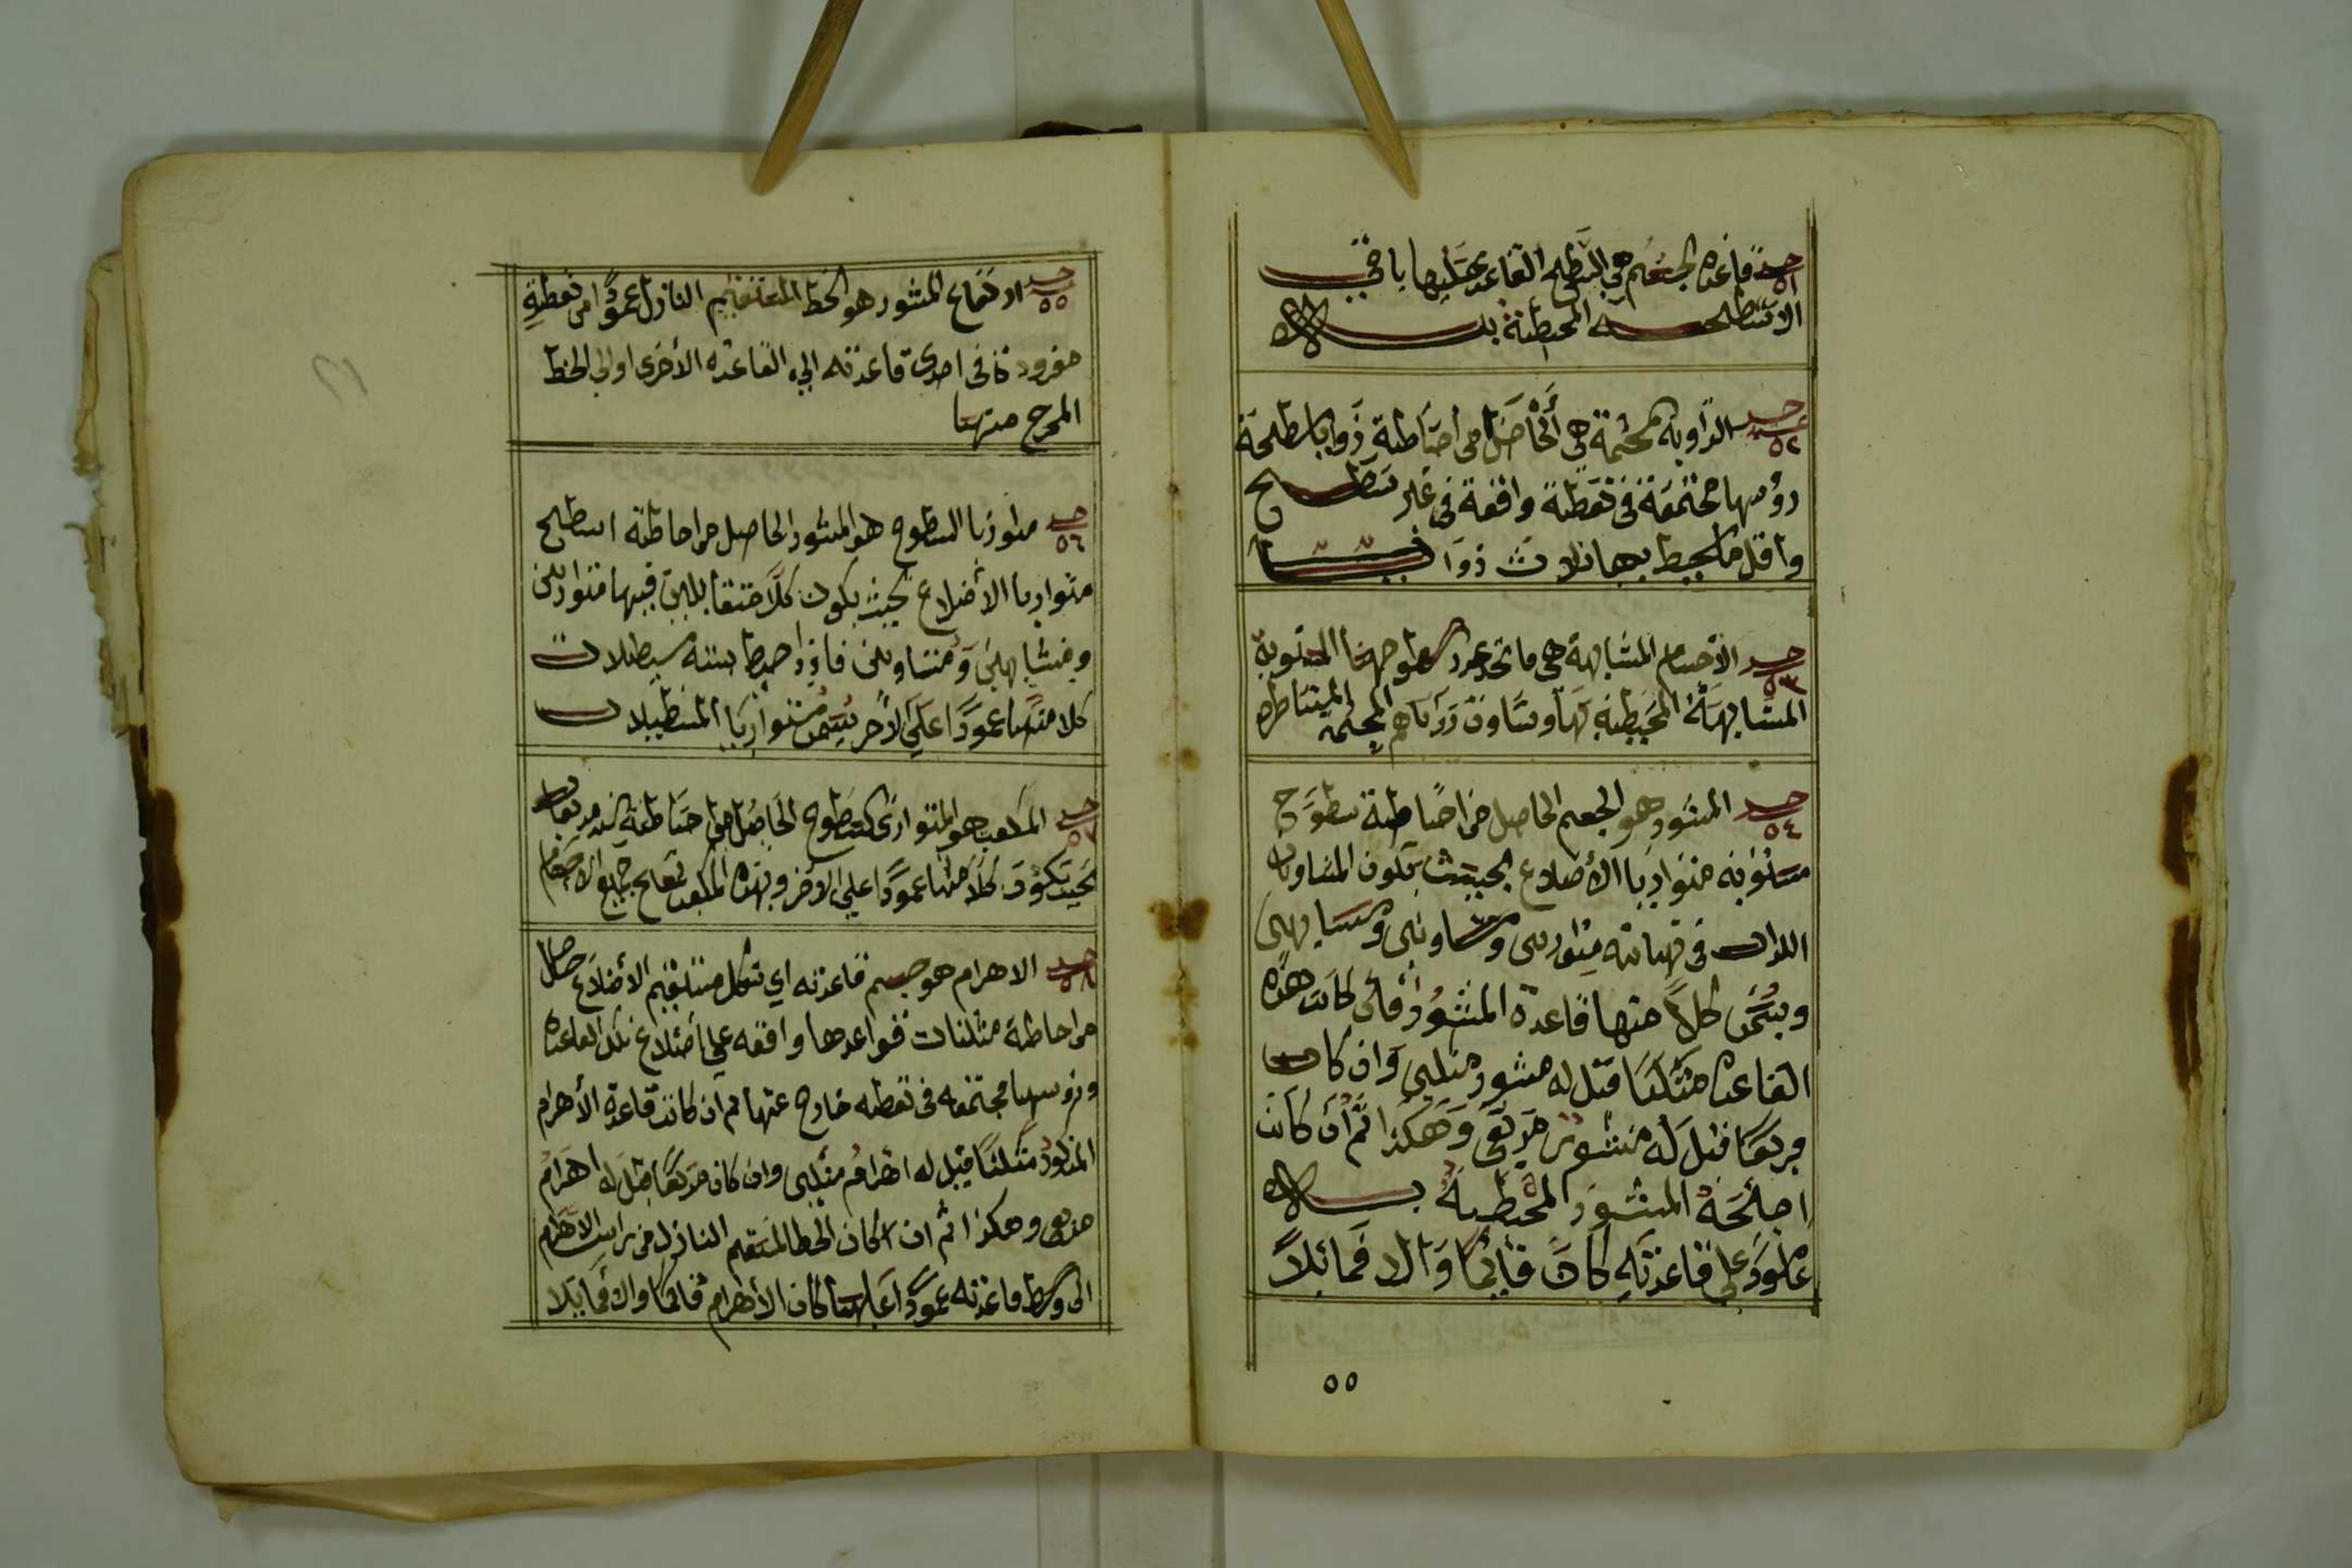 حد ٥١ قاعدة الجسم هي السطح القاعد عليها باقي
الاسطحه المحيطة به
حد ٥٢ الزاوية المجسمة هي الحاصل من احاطة زوايا سطحة
رؤسها مجتمعة في نقطة واقعة في غير سطح
واقل ما يحيط بها ثلاث زوايا
حد ٥٣ الأجسام المتشابهة هي ما تحد عدد سطوحها المستوية
المتشابهة المحيطة بها وتساوت زواياهم المجسمة المتناظره
حد ٥٤ المنشور هو الجسم الحاصل من احاطة سطوح
مستويه متوازيا الأضلاع بحيث يكون المتساويان
اللذان في نهايته متوازيين ومتساويين ومتشابهين
ويسمى كلاً منها قاعدة المنشور فأن كانت هذه
القاعدة مثلثا قيل له منشور مثلثي وان كانت
مربعا قيل له منشور مربعي وهكذا ثم أن كانت
اجنحة المنشور المحيطية به
عامود علي قاعدته كان قائما والا فمائلاً
٥٥
حد ٥٥ ارتفاع المنشور هو الخط المستقيم النازل عموداً من نقطةٍ
مفرودة في احدى قاعدته الي القاعده الأخرى اوالي الخط
المخرج منها
حد ٥٦ متوازيا السطوح هو المنشور الحاصل من احاطته اسطح
متوازيا الأضلاع بحيث يكون كلاً متقابلين فيها متوازيين
ومتشابهين ومتساويين فاذا احيط بسته مستطيلات
كلا منها عموداً علي الأخر يسمى متوازيا المستطيلات
حد ٥٧ المكعب هو المتوازي السطوح الحاصل من احاطة ستة مربعات
بحيث يكون كلا منها عموداً علي الاخر وبهذه المكعب تقاس جميع الاجسام
حد ٥٨ الاهرام هو جسم قاعدته اي شكل مستقيم الأضلاع حاصل
من احاطة مثلثات قواعدها واقعه علي أضلاع تلك القاعدة
ورؤسها مجتمعه في نقطه خارج عنها ثم ان كانت قاعدة الأهرام
المذكور مثلثاً قيل له اهرام مثلثي وان كان مربعاً قيل له اهرام
مربعي وهكذا ثم ان كان الخط المستقيم النازل من راس الاهرام
الى وسط قاعدته عموداً عليها كان الأهرام قائما والا فمايلا